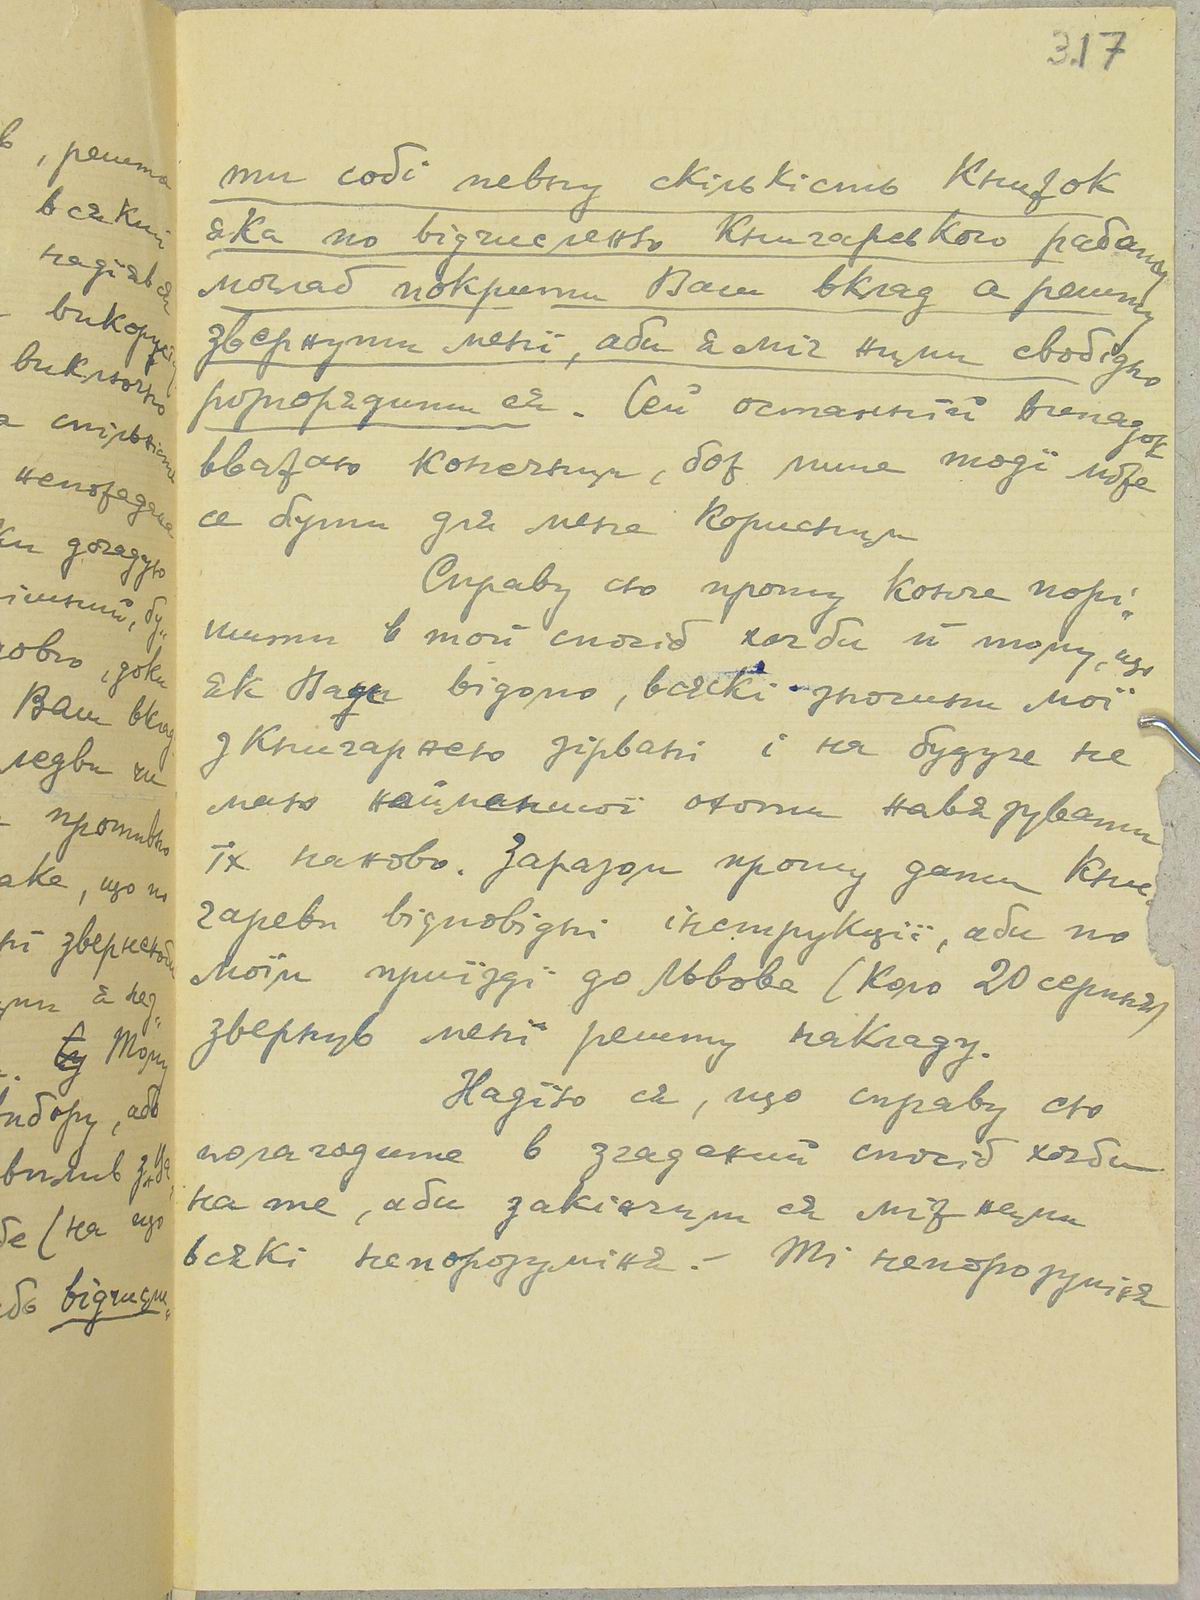 317
ти собі певну скількість книжок
яка по відчисленю книгарського рабату
моглаб покрити Ваш вклад а решту
звернути мені, аби я міг ними свобідно
розпорядити ся. Сей останній випадок
вважаю конечним, бож лише тоді може
се бути для мене корисним
Справу сю прошу конче порі-
шити в той спосіб хочби й тому, що
як Вам відомо, всякі зносини мої
з книгарнею зірвані і на будуче не
маю найменшої охоти навязувати
їх наново. Заразом прошу дати кни-
гареви відповідні інструкції, аби по
моїм приїзді до Львова (коло 20 серпня)
звернув мені решту накладу.
Надїю ся, що справу сю
полагодите в згаданий спосіб хочби
на те, аби закінчим ся між нами
всякі непорозуміня. — Ті непорозуміня
, решта
всякий
надіявся
викорис
виключно
непожадана
догадую
, доки
Ваш вклад
ледви чи
противно
аке, що по
я над-
Тому
вибору, або
(на що
відчисли-